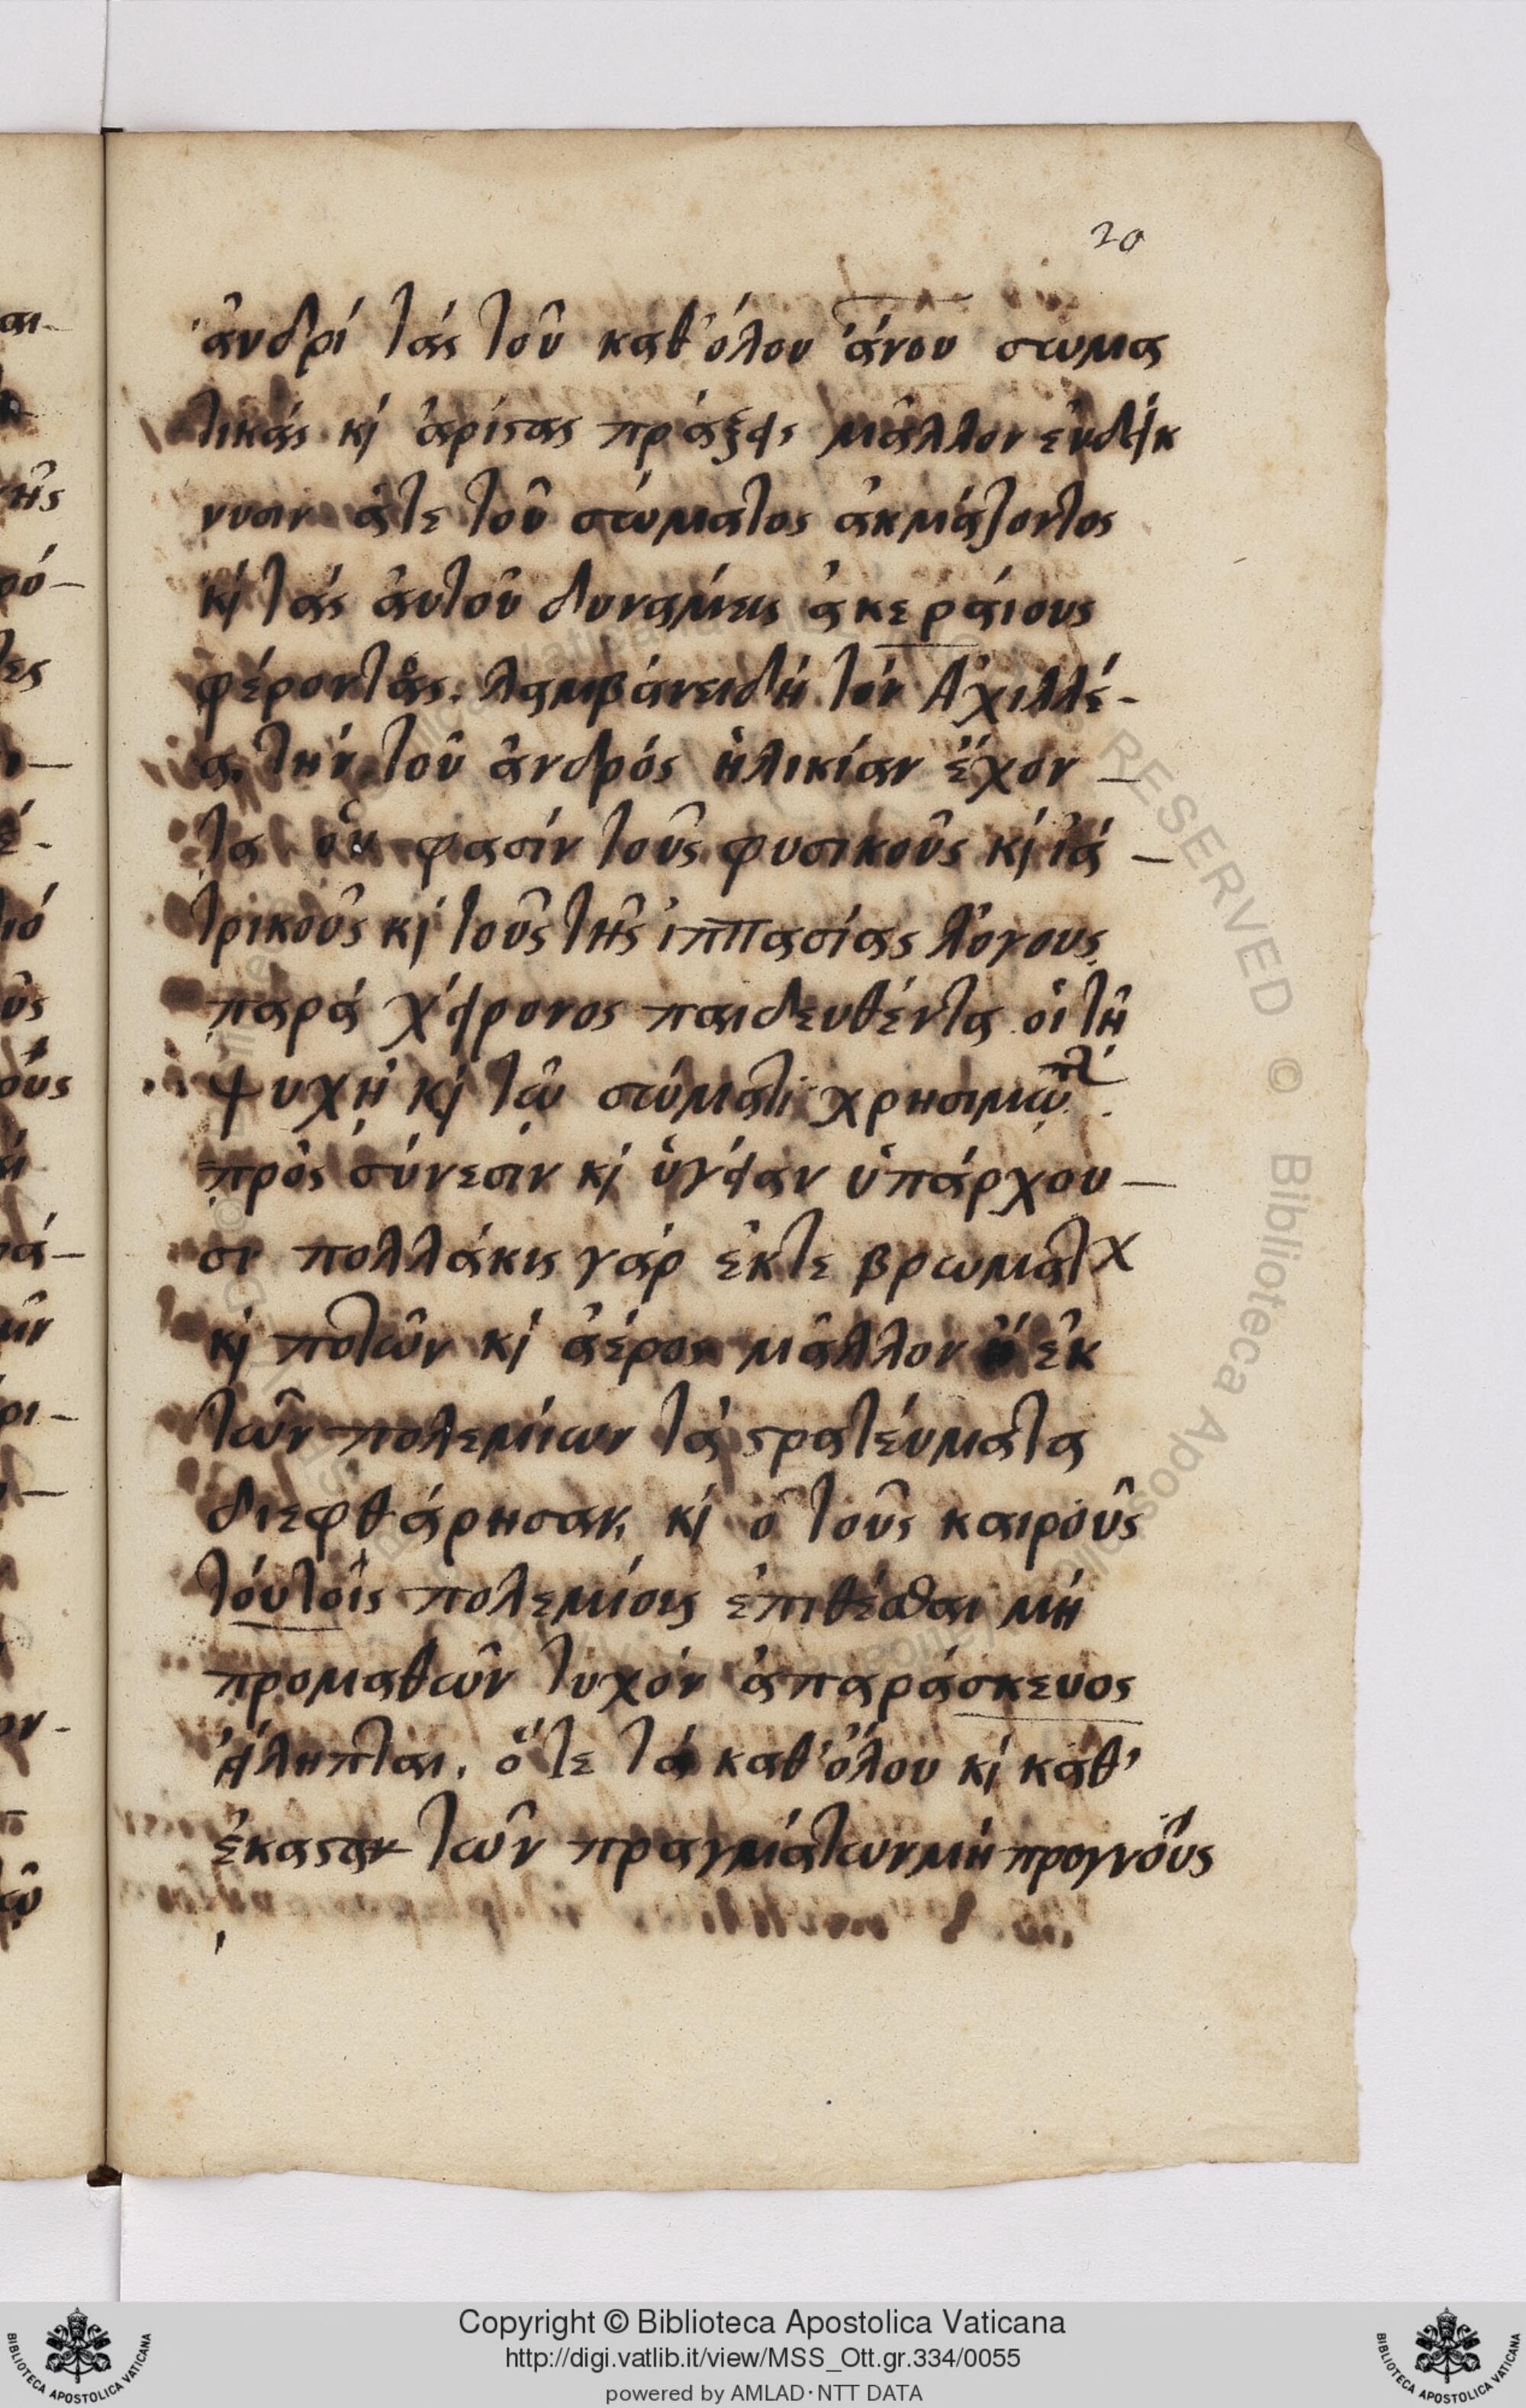 20
ἀνδρί τάς τοῦ καθ' όλου ἀνου σωμα
τικάς κ ἀρίστας πράξεις μᾶλλον ἐνδείκ
νυσιν ἅτε τοῦ σώματος ἀκμάζοντος
κ τάς ἀυτοῦ δυναμεις ἀκεράιους
φέροντος. λαμβάνει δή τόν Ἀχιλλέ-
α, τήν τοῦ ἀνδρός ἡλικίαν ἔχον—
τα ὅν φασίν τοῦς φυσικοῦς κ ἰά—
τρικοῦς κ τοῦς τῆς ἱππασίας λόγους
παρά χείρονος παιδευθέντα. οἱ τῆ
ψυχῆ κ τῷ σώματι χρησιμώτ
πρὸς σύνεσιν κ ὑγείαν ὑπάρχου—
σι πολλάκις γάρ ἐκτε βρωμάτ
κ ποτῶν κ ἀέρος μᾶλλον ἤ ἐκ
τῶν πολεμίων τά στρατέυματα
διεφθάρησαν, κ ὁ τοῦς καιροῦς
τόυτοῖς πολεμίοις ἐπιθέσθαι μή
προμαθῶν τυχόν ἀπαράσκευος
εἴληπται. ὅ τε τά καθ' όλου κ καθ'
ἕκασταν τῶν πραγμάτων μή προγνόυς